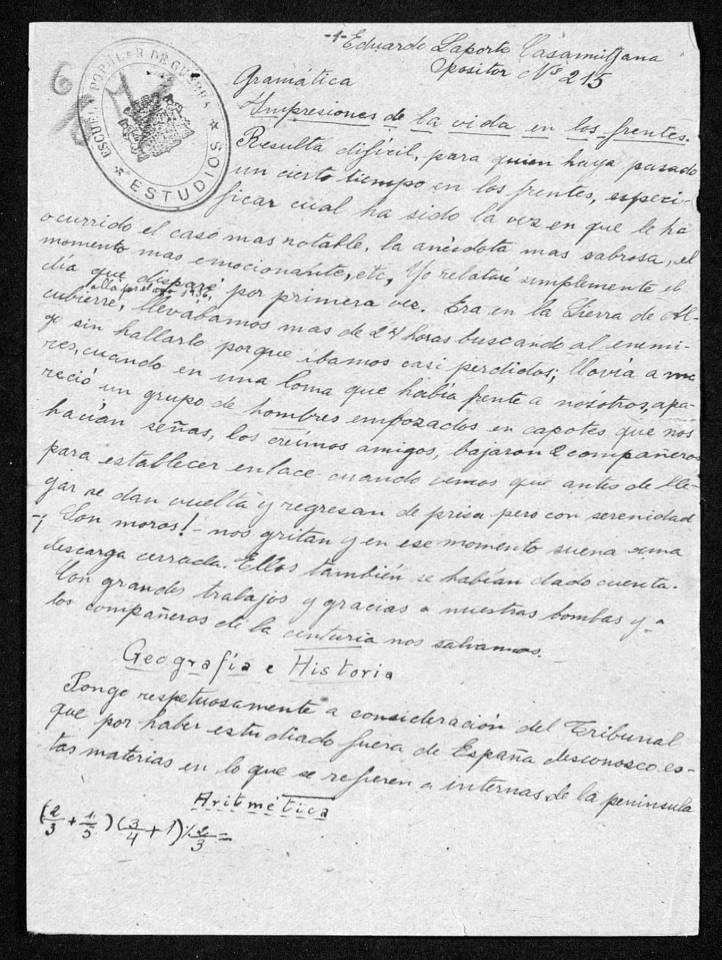 -1- Eduardo Laporte Casamitjana
Opositor Nº 215
ESCUELA POPULAR DE GUERRA
ESTUDIOS
Gramática
Impresiones de la vida en los frentes.
Resulta difícil, para quien haya pasado
un cierto tiempo en los frentes, especi-
ficar cual ha sido la vez en que le ha
ocurrido el caso mas notable, la anécdota mas sabrosa, el
momento mas emocionante, etc, Yo relataré simplemente el
día que disparé por primera vez. Era en la Sierra de Al-
cubierre, llevabamos mas de 24 horas buscando al enemi-
go sin hallarlo porque ibamos casi perdidos; llovía a ma
res, cuando en una loma que había frente a nosotros, apa-
reció un grupo de hombres embozados en capotes que nos
hacían señas, los creimos amigos, bajaron 2 compañeros
para establecer enlace cuando vemos que antes de lle-
gar se dan vuelta y regresan de prisa pero con serenidad
-¡ Son moros! - nos gritan y en ese momento suena una
descarga cerrada. Ellos también se habían dado cuenta.
Con grandes trabajos y gracias a nuestras bombas y a
los compañeros de la centuria nos salvamos.
Geografía e Historia
Pongo respetuosamente a consideración del Tribunal
que por haber estudiado fuera de España desconozco es-
tas materias en lo que se refieren a internas de la península
Aritmética
(2/3 + 1/5) (3/4 + 1) 1/2/3 =